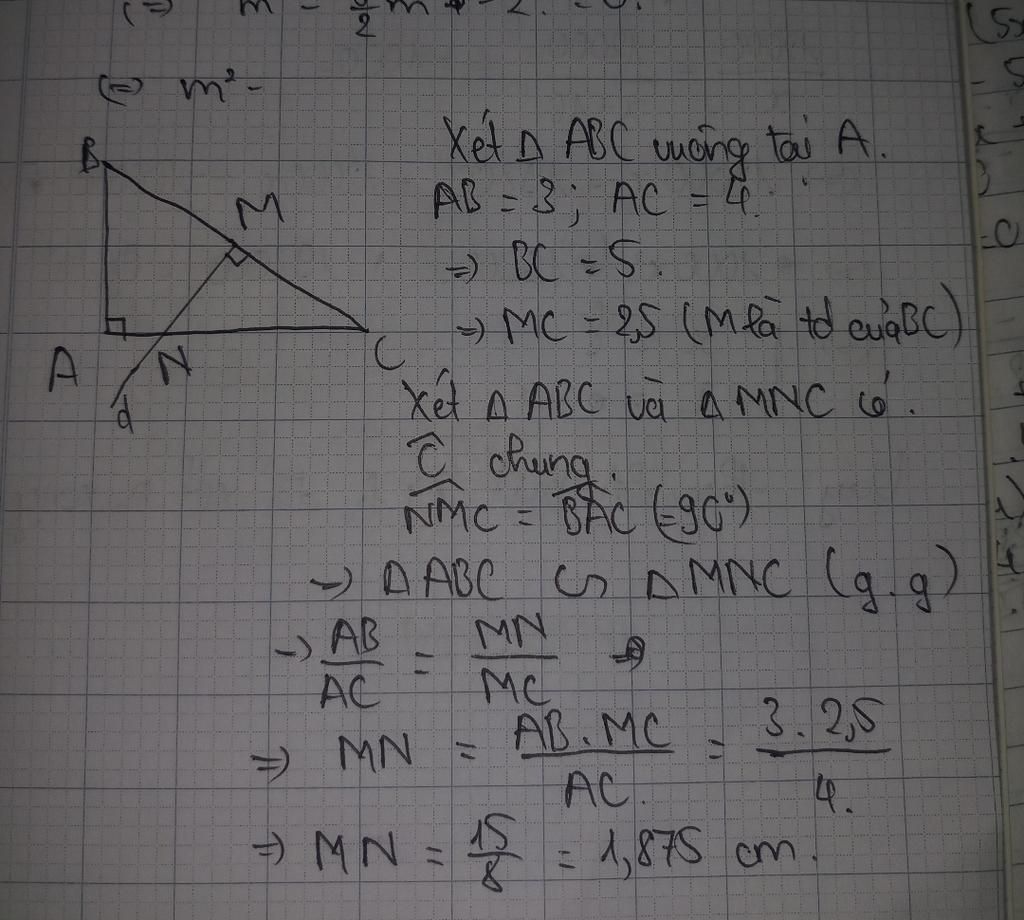 (=) m² -
B
M
A
N
C
d
Xét Δ ABC vuông tại A.
AB = 3; AC = 4.
=) BC = 5.
=) MC = 2,5 (M là tđ của BC)
Xét Δ ABC và Δ MNC có.
Ĉ chung.
NMC = BAC (=90°)
-) Δ ABC ∽ Δ MNC (g.g)
-) AB/AC = MN/MC
=) MN = AB.MC/AC. = 3.2,5/4.
=) MN = 15/8 = 1,875 cm.